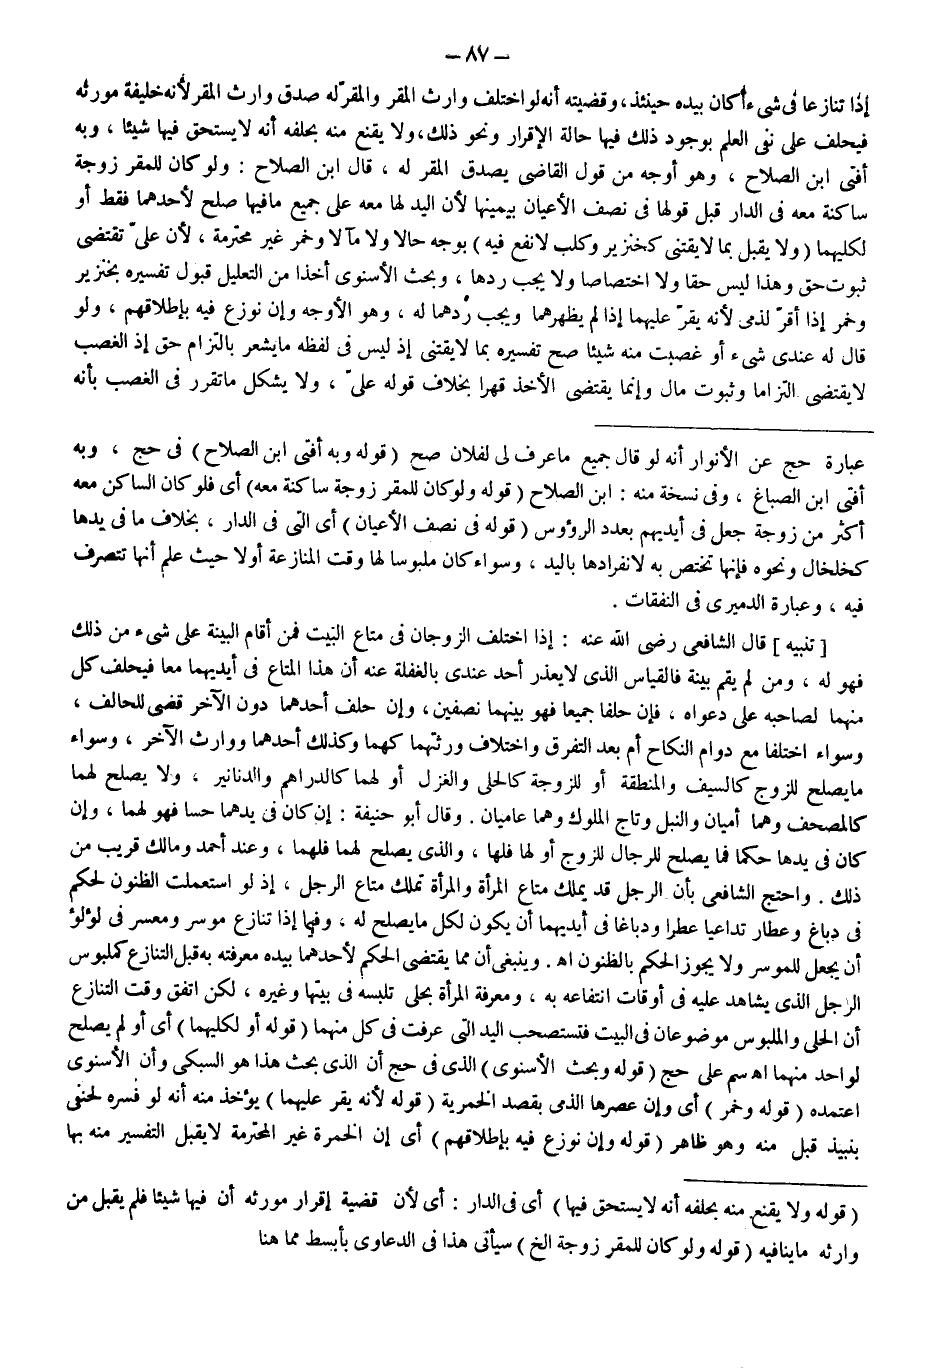 — ٨٧ —
إذا تنازعا فى شىء أكان بيده حينئذ، وقضيته أنه لو اختلف وارث المقر والمقرّ له صدق وارث المقر لأنه خليفة مورثه
فيحلف على نفى العلم بوجود ذلك فيها حالة الإقرار ونحو ذلك، ولا يقنع منه بحلفه أنه لا يستحق فيها شيئا ، وبه
أفتى ابن الصلاح ، وهو أوجه من قول القاضى يصدق المقر له ، قال ابن الصلاح : ولو كان للمقر زوجة
ساكنة معه فى الدار قبل قولها فى نصف الأعيان بيمينها لأن اليد لها معه على جميع مافيها صلح لأحدهما فقط أو
لكليهما ( ولا يقبل بما لايقتنى كخنزير وكلب لانفع فيه ) بوجه حالا ولا مآلا وخمر غير محترمة ، لأن علىّ تقتضى
ثبوت حق وهذا ليس حقا ولا اختصاصا ولا يجب ردها ، وبحث الأسنوى أخذا من التعليل قبول تفسيره بخنزير
وخمر إذا أقرّ لذمى لأنه يقرّ عليهما إذا لم يظهرهما ويجب رُدهما له ، وهو الأوجه وإن نوزع فيه بإطلاقهم ، ولو
قال له عندى شىء أو غصبت منه شيئا صح تفسيره بما لايقتنى إذ ليس فى لفظه مايشعر بالتزام حق إذ الغصب
لايقتضى التزاما وثبوت مال وإنما يقتضى الأخذ قهرا بخلاف قوله علىّ ، ولا يشكل ماتقرر فى الغصب بأنه
عبارة حج عن الأنوار أنه لو قال جميع ماعرف لى لفلان صح ( قوله وبه أفتى ابن الصلاح ) فى حج ، وبه
أفتى ابن الصباغ ، وفى نسخة منه : ابن الصلاح ( قوله ولو كان للمقر زوجة ساكنة معه) أى فلو كان الساكن معه
أكثر من زوجة جعل فى أيديهم بعدد الرؤوس ( قوله فى نصف الأعيان ) أى التى فى الدار ، بخلاف ما فى يدها
كخلخال ونحوه فإنها تختص به لانفرادها باليد ، وسواء كان ملبوسا لها وقت المنازعة أولا حيث علم أنها تتصرف
فيه ، وعبارة الدميرى فى النفقات .
[ تنبيه ] قال الشافعى رضى الله عنه : إذا اختلف الزوجان فى متاع البيت فمن أقام البينة على شىء من ذلك
فهو له ، ومن لم يقم بينة فالقياس الذى لايعذر أحد عندى بالغفلة عنه أن هذا المتاع فى أيديهما معا فيحلف كل
منهما لصاحبه على دعواه ، فإن حلفا جميعا فهو بينهما نصفين، وإن حلف أحدهما دون الآخر قضى للحالف ،
وسواء اختلفا مع دوام النكاح أم بعد التفرق واختلاف ورثتهما كهما وكذلك أحدهما ووارث الآخر ، وسواء
مايصلح للزوج كالسيف والمنطقة أو للزوجة كالحلى والغزل أو لهما كالدراهم والدنانير ، ولا يصلح لهما
كالمصحف وهما أميان والنبل وتاج الملوك وهما عاميان . وقال أبو حنيفة : إن كان فى يدهما حسا فهو لهما ، وإن
كان فى يدها حكما فما يصلح للرجال للزوج أو لها فلها ، والذى يصلح لهما فلهما ، وعند أحمد ومالك قريب من
ذلك . واحتج الشافعى بأن الرجل قد يملك متاع المرأة والمرأة تملك متاع الرجل ، إذ لو استعملت الظنون لحكم
فى دباغ وعطار تداعيا عطرا ودباغا فى أيديهما أن يكون لكل مايصلح له ، وفيما إذا تنازع موسر ومعسر فى لؤلؤ
أن يجعل للموسر ولا يجوز الحكم بالظنون اه . وينبغى أن مما يقتضى الحكم لأحدهما بيده معرفته به قبل التنازع كملبوس
الرجل الذى يشاهد عليه فى أوقات انتفاعه به ، ومعرفة المرأة بحلى تلبسه فى بيتها وغيره ، لكن اتفق وقت التنازع
أن الحلى والملبوس موضوعان فى البيت فتستصحب اليد التى عرفت فى كل منهما ( قوله أو لكليهما ) أى أو لم يصلح
لواحد منهما اه سم على حج ( قوله وبحث الأسنوى ) الذى فى حج أن الذى بحث هذا هو السبكى وأن الأسنوى
اعتمده ( قوله وخمر ) أى وإن عصرها الذمى بقصد الخمرية ( قوله لأنه يقر عليهما ) يؤخذ منه أنه لو فسره لحنفى
بنبيذ قبل منه وهو ظاهر ( قوله وإن نوزع فيه بإطلاقهم ) أى إن الخمرة غير المحترمة لايقبل التفسير منه بها
( قوله ولا يقنع منه بحلفه أنه لايستحق فيها ) أى فى الدار : أى لأن قضية إقرار مورثه أن فيها شيئا فلم يقبل من
وارثه ماينافيه ( قوله ولو كان للمقر زوجة الخ ) سيأتى هذا فى الدعاوى بأبسط مما هنا